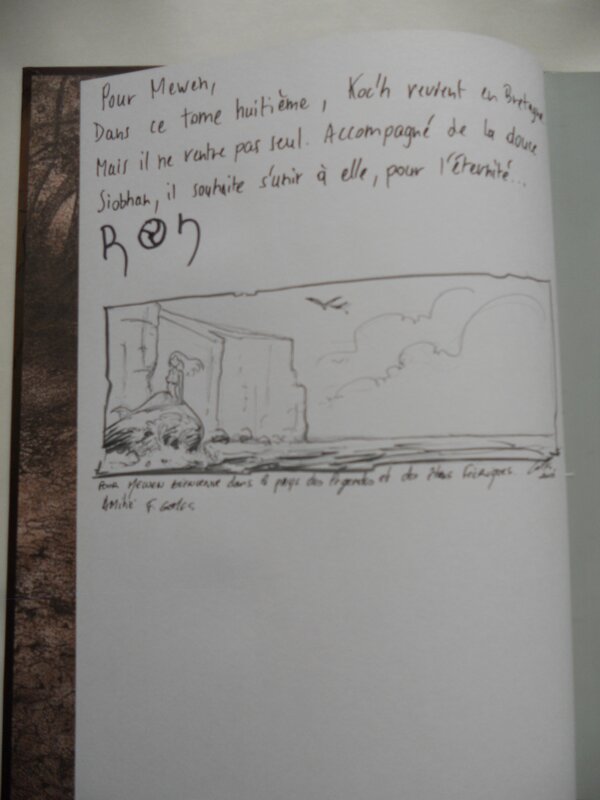 Pour Mewen,
Dans ce tome huitième, Koc'h revient en Bretagne
Mais il ne rentre pas seul. Accompagné de la douce
Siobhan, il souhaite s'unir à elle, pour l'éternité...
Pour Mewen bienvenue dans le pays des légendes et des êtres féériques.
Amitié F.